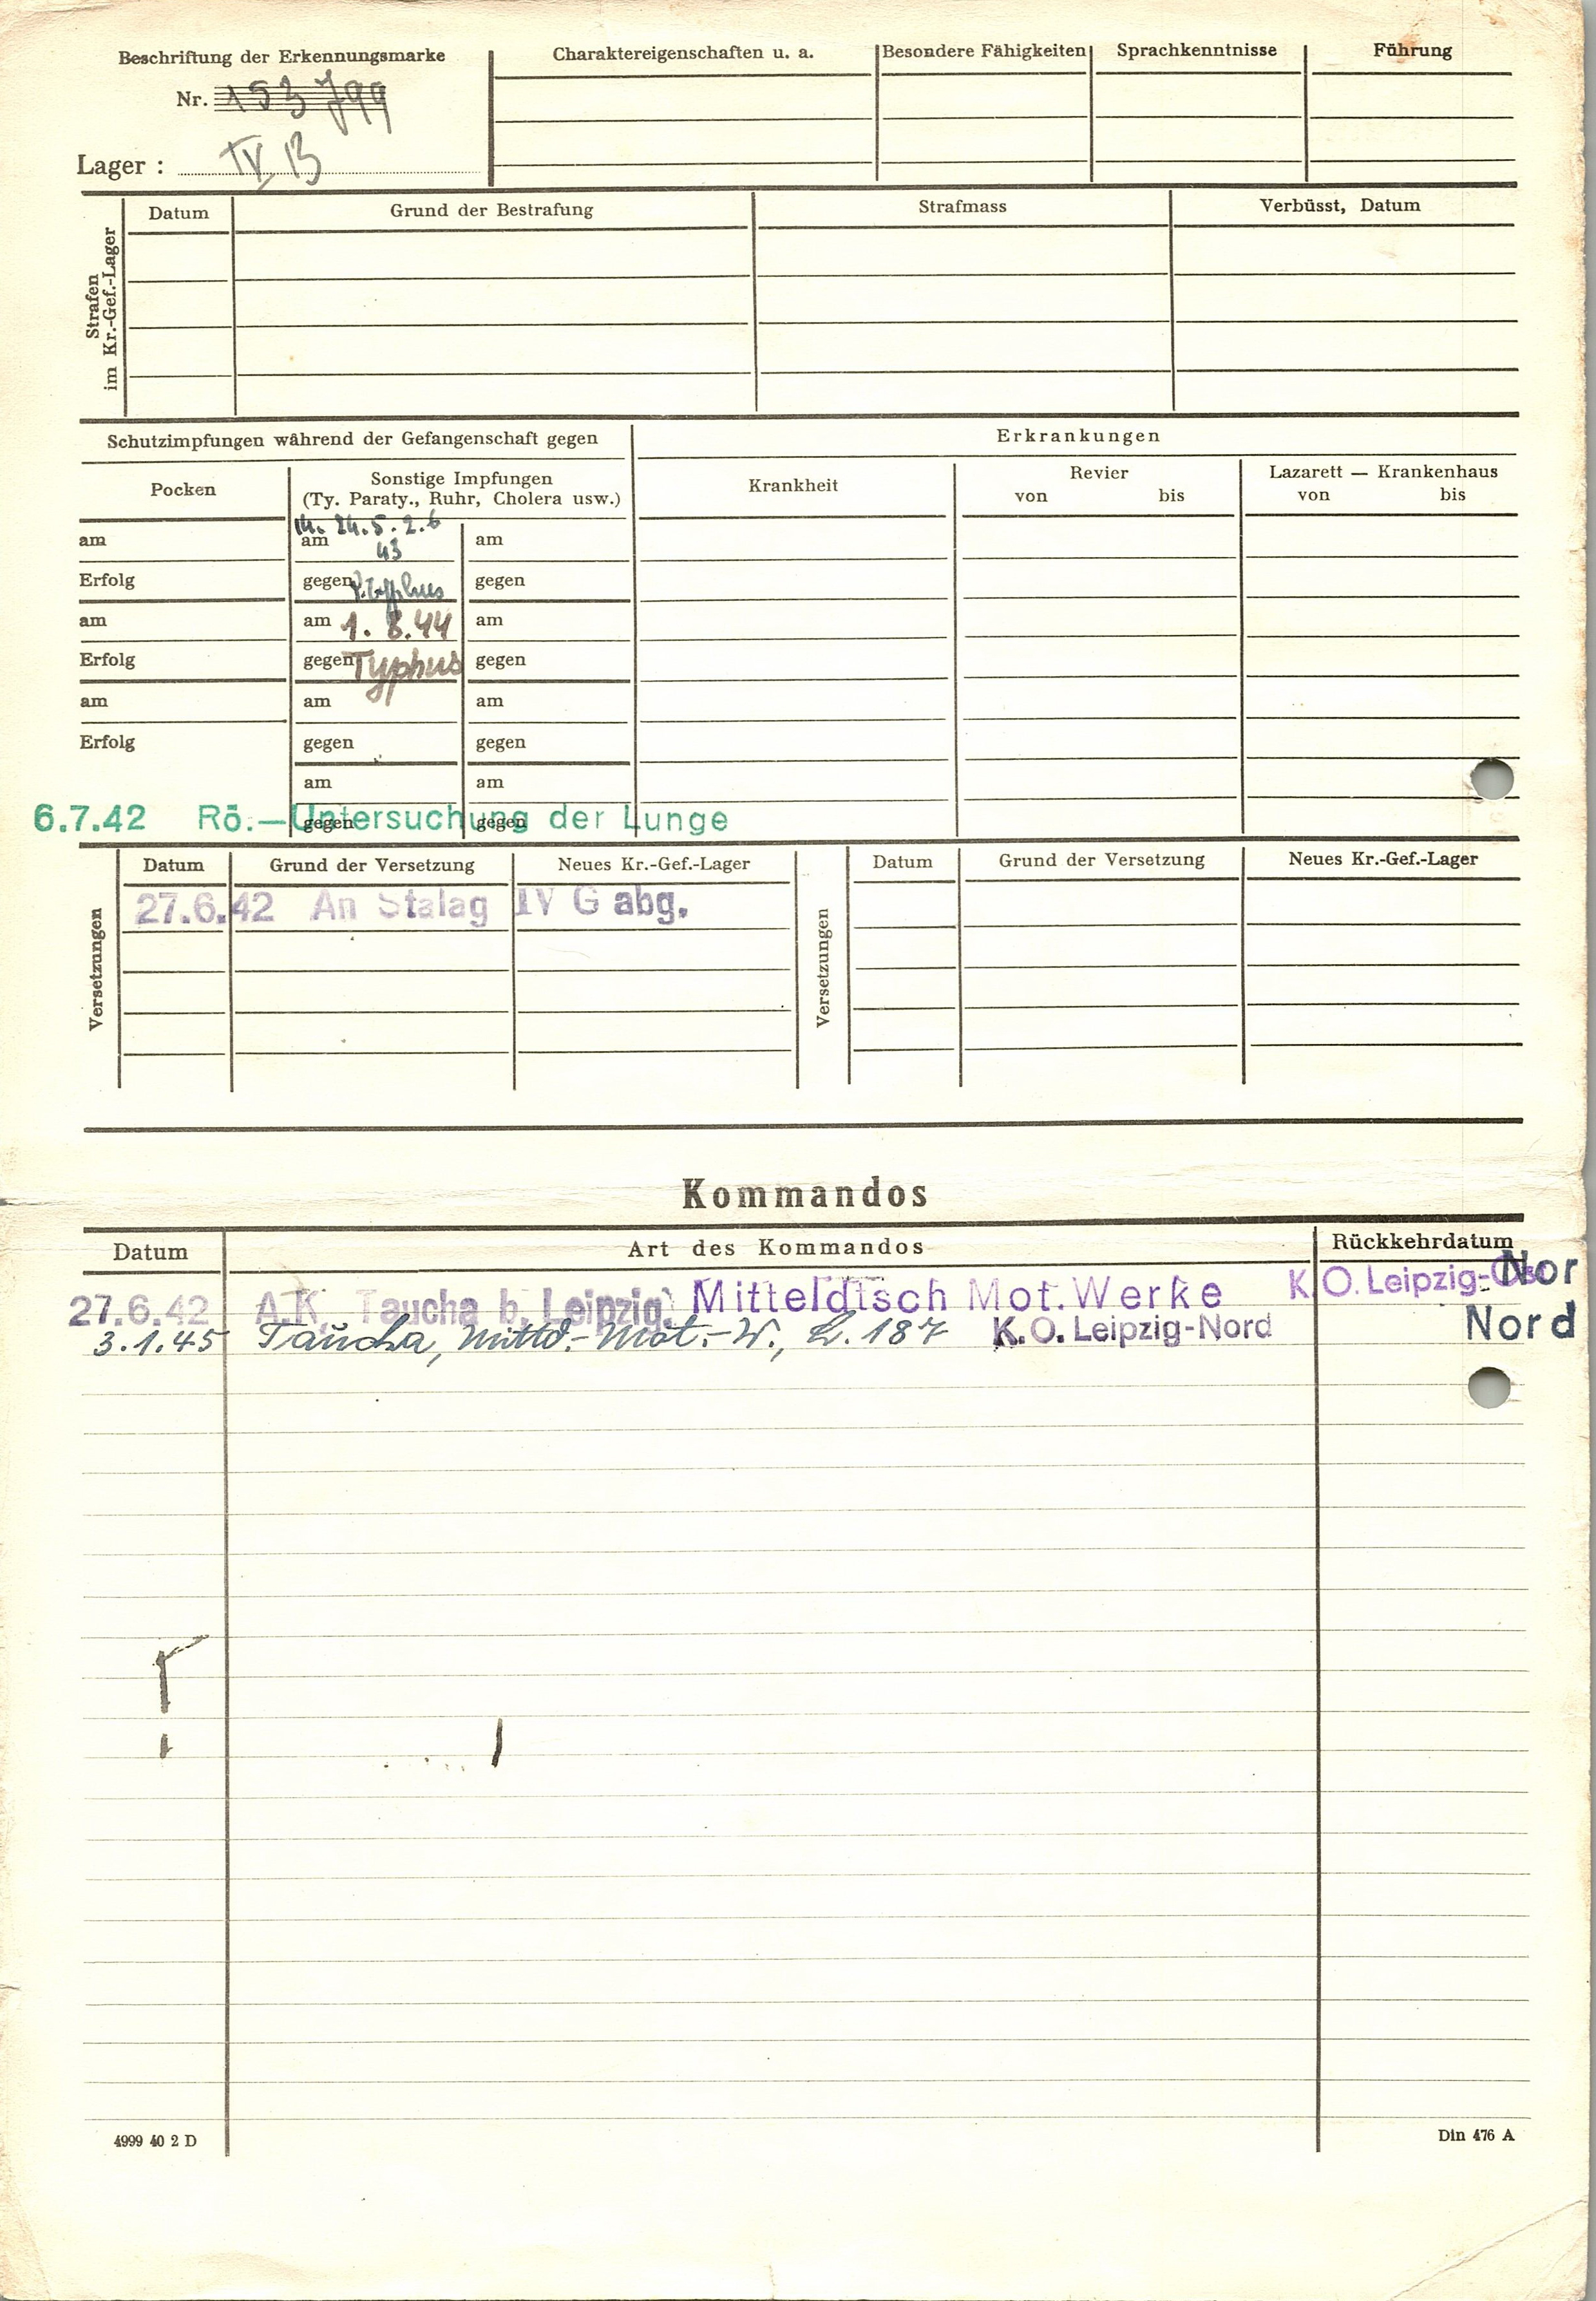 Beschriftung der Erkennungsmarke
Nr. 153799
Lager : IV B
Charaktereigenschaften u. a. Besondere Fähigkeiten Sprachkenntnisse Führung
Strafen
im Kr.-Gef.-Lager
Datum Grund der Bestrafung Strafmass Verbüsst, Datum
Schutzimpfungen während der Gefangenschaft gegen
Erkrankungen
Pocken
Sonstige Impfungen
(Ty. Paraty., Ruhr, Cholera usw.)
Krankheit
Revier
von bis
Lazarett — Krankenhaus
von bis
14. 24.5. 2.6
am am 43 am
Erfolg gegen gegen
am am 1. 8.44 am
Erfolg gegen Typhus gegen
am am am
Erfolg gegen gegen
am am
gegen gegen
6.7.42 Rö.—Untersuchung der Lunge
Versetzungen
Datum Grund der Versetzung Neues Kr.-Gef.-Lager
27.6.42 An Stalag IV G abg.
Versetzungen
Datum Grund der Versetzung Neues Kr.-Gef.-Lager
Kommandos
Datum Art des Kommandos Rückkehrdatum
27.6.42 A.K. Taucha b. Leipzig. Mitteldtsch Mot. Werke K.O. Leipzig- Nor
3.1.45 Taucha, Mittd.-Mot.-W., L. 187 K.O. Leipzig-Nord Nord
4999 40 2 D
Din 476 A